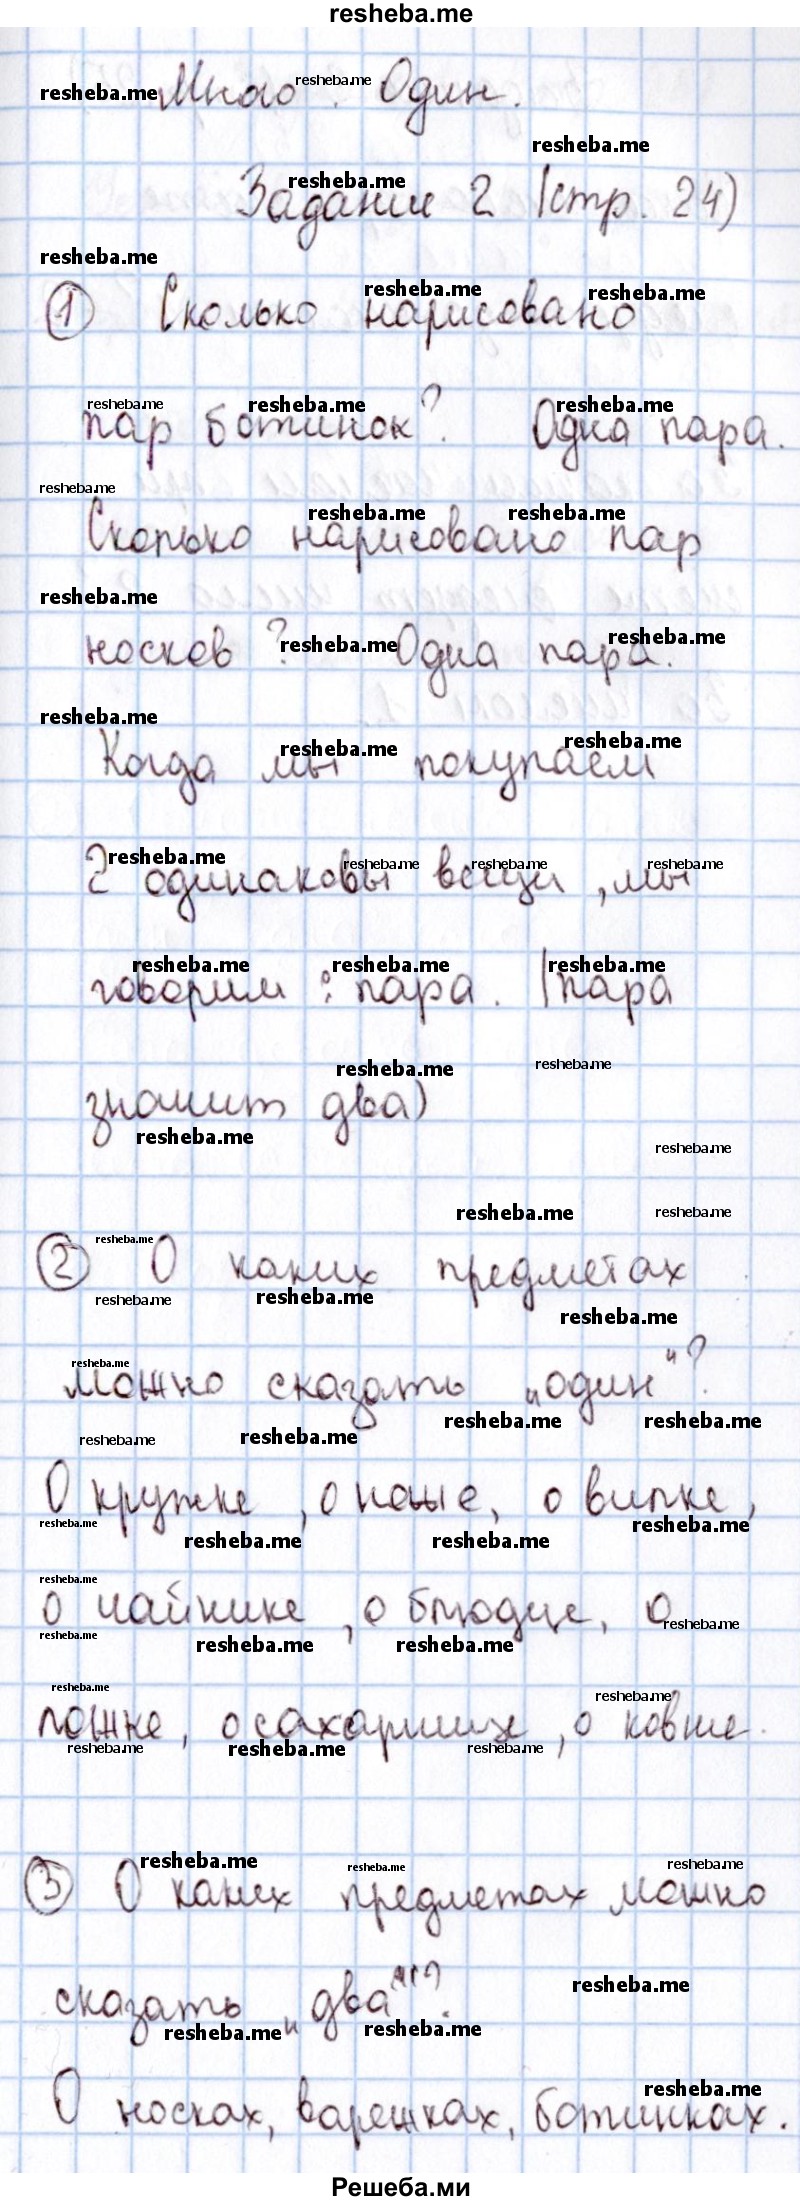 resheba.me
Много. Один.
Задание 2 (стр. 24)
① Сколько нарисовано
пар ботинок? Одна пара.
Сколько нарисовано пар
носков? Одна пара.
Когда мы покупаем
2 одинаковы вещи, мы
говорим: пара. (пара
значит два)
② О каких предметах
можно сказать „один"?
О кружке, о каше, о вилке,
о чайнике, о блюдце, о
ложке, о сахарнице, о ковше.
③ О каких предметах можно
сказать „два"?
О носках, варежках, ботинках.
Решеба.ми